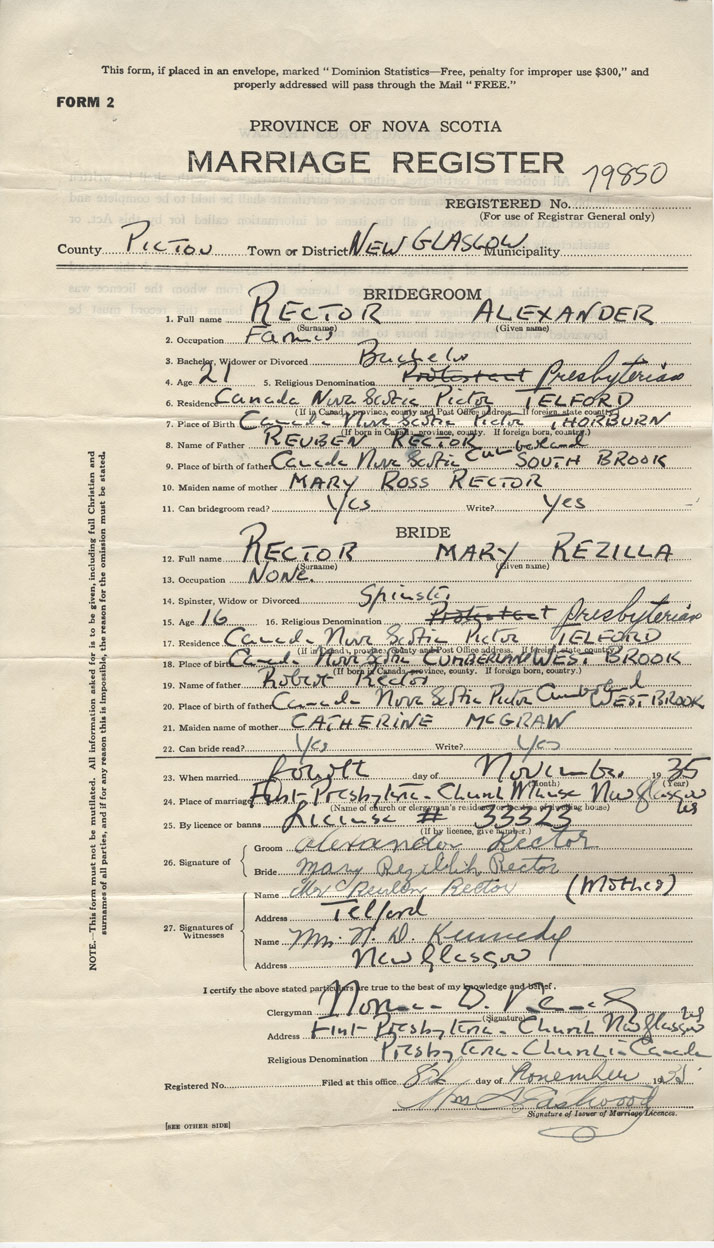 This form, if placed in an envelope, marked "Dominion Statistics—Free, penalty for improper use $300," and
properly addressed will pass through the Mail "FREE."
FORM 2
PROVINCE OF NOVA SCOTIA
MARRIAGE REGISTER 79850
REGISTERED No.
(For use of Registrar General only)
County PICTOU Town or District NEW GLASGOW Municipality
BRIDEGROOM
1. Full name RECTOR ALEXANDER
(Surname) (Given name)
2. Occupation Farmer
3. Bachelor, Widower or Divorced Bachelor
4. Age 21 5. Religious Denomination Protestant Presbyterian
6. Residence Canada Nova Scotia Pictou TELFORD
(If in Canada, province, county and Post Office address. If foreign, state country)
7. Place of Birth Canada Nova Scotia Pictou THORBURN
(If born in Canada, province, county. If foreign born, country.)
8. Name of Father REUBEN RECTOR
9. Place of birth of father Canada Nova Scotia Cumberland SOUTH BROOK
10. Maiden name of mother MARY ROSS RECTOR
11. Can bridegroom read? Yes Write? Yes
BRIDE
12. Full name RECTOR MARY REZILLA
(Surname) (Given name)
13. Occupation NONE.
14. Spinster, Widow or Divorced Spinster
15. Age 16 16. Religious Denomination Protestant Presbyterian
17. Residence Canada Nova Scotia Pictou TELFORD
(If in Canada, province, county and Post Office address. If foreign, state country)
18. Place of birth Canada Nova Scotia CUMBERLAND WEST BROOK
(If born in Canada, province, county. If foreign born, country.)
19. Name of father Robert Rector
20. Place of birth of father Canada Nova Scotia Pictou Cumberland WEST BROOK
21. Maiden name of mother CATHERINE McGRAW
22. Can bride read? Yes Write? Yes
23. When married fourth day of November 1935
(Month) (Year)
24. Place of marriage First Presbyterian Church Manse New Glasgow NS
(Name of church or clergyman's residence or dwelling house)
25. By licence or banns License # 33323
(If by licence, give number.)
26. Signature of Groom Alexander Rector
Bride Mary Rezillih Rector
27. Signatures of Witnesses
Name Mrs Reuben Rector (Mother)
Address Telford
Name Mrs. N. D. Kennedy
Address New Glasgow
I certify the above stated particulars are true to the best of my knowledge and belief.
Clergyman Norman D. Kennedy
(Signature)
Address First Presbyterian Church New Glasgow NS
Religious Denomination Presbyterian Church in Canada
Registered No. Filed at this office 8th day of November 1935
Eastwood
Signature of Issuer of Marriage Licences.
[SEE OTHER SIDE]
NOTE.—This form must not be mutilated. All information asked for is to be given, including full Christian and
surnames of all parties, and if for any reason this is impossible, the reason for the omission must be stated.